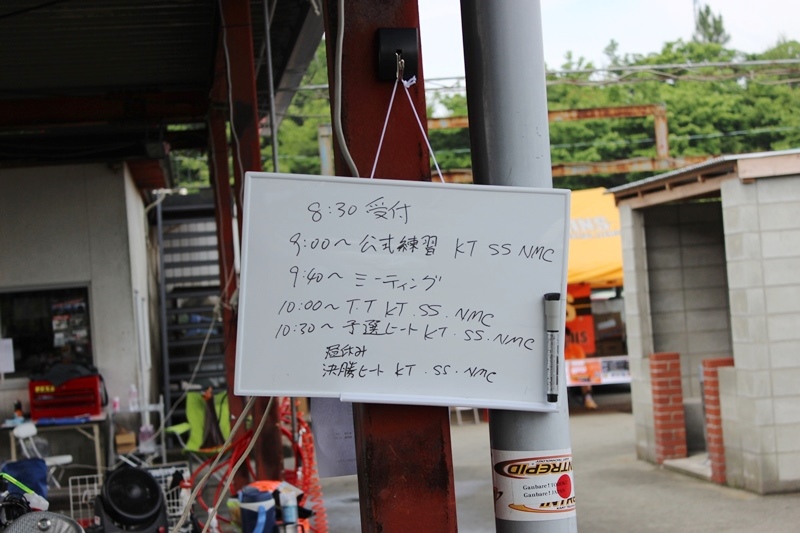 8:30 受付
9:00～ 公式練習 KT SS NMC
9:40～ ミーティング
10:00～ T.T KT. SS. NMC
10:30～ 予選ヒート KT. SS. NMC
昼休み
決勝ヒート KT. SS. NMC
INTREPID
Ganbare!
Ganbare!